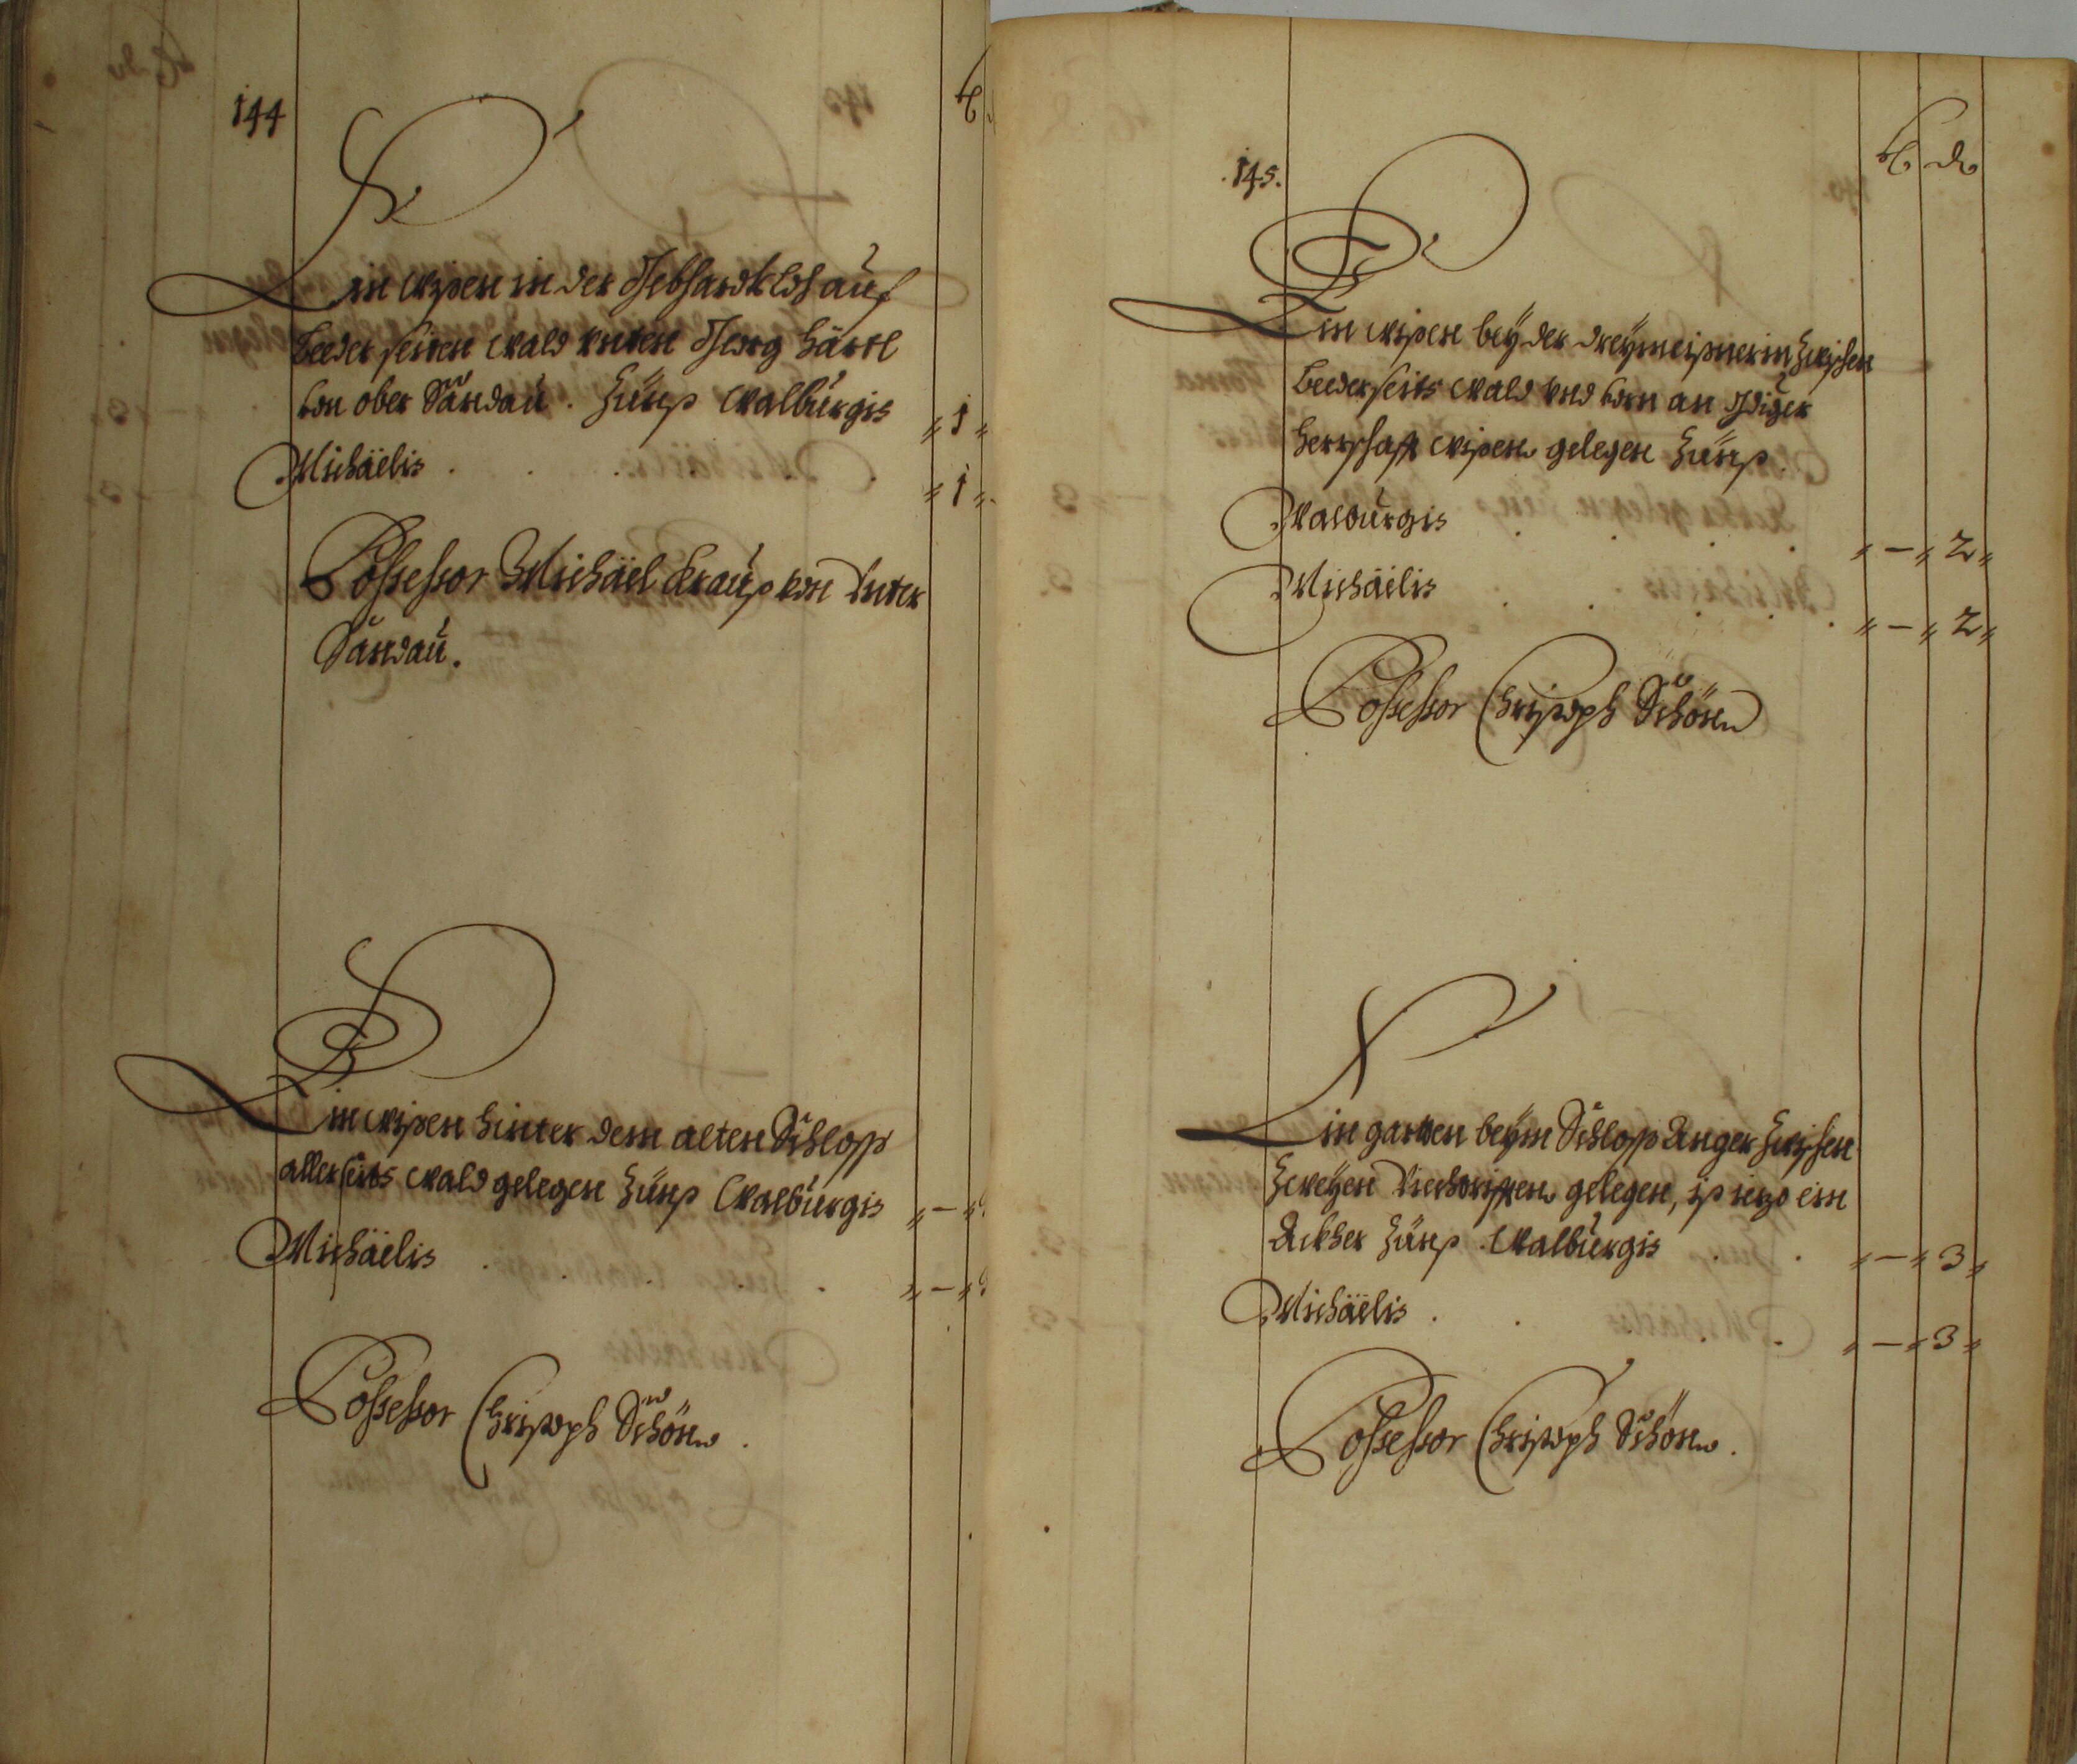 144
Ein Wisen in der Gebhardtloh auf
beeder seiten Wald unten Georg Härtl
von ober Sandau. Zünß Walburgis „ 1 „
Michaëlis . . . . „ 1 „
Possessor Michäel Krauß von Unter
Sandau.
Ein Wisen hinter dem alten Schloß
allerseits Wald gelegen Zünß Walburgis „ — „
Michäelis . . . . „ — „
Possessor Christoph Schön .
145.
ß d
Ein Wisen beÿ der dreÿmeisnerin zwischen
beederseits Wald und vorn an
herrschaft Wisen gelegen Zünß.
Walburgis . . . „ — „ 2 „
Michäelis . . . . „ — „ 2 „
Possessor Christoph Schön
Ein garten beÿm Schloß Anger zwischen
Zweÿen gelegen, ist iezo ein
Ackher Zünß Walburgis . . „ — „ 3 „
Michäelis . . . . „ — „ 3 „
Possessor Christoph Schön .